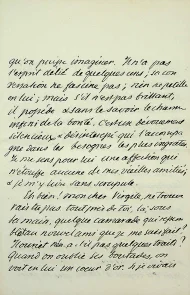 qu'on puisse imaginer. Il n'a pas
l'esprit délié de quelques uns, sa con
versation ne fascine pas ; rien ne pétille
en lui ; mais s'il n'est pas brillant,
il possède sans le savoir le charme
infini de la bonté. C'est un dévouement
silencieux & désintéressé qui l'accompa
gne dans les besognes les plus ingrates.
Je me sens pour lui une affection qui
n'étouffe aucune de mes vieilles amitiés,
& je m'y livre sans scrupule.
Eh bien! mon cher Virgile, ne trouve
rais tu pas tout près de toi, là, sous
ta main, quelque camarade qui
à ce nouvel ami que je me suis fait?
Nourrit n'en a-t-il pas quelques traits?
Quand on oublie ses boutades, on
voit en lui un cœur d'or. Si j'avais